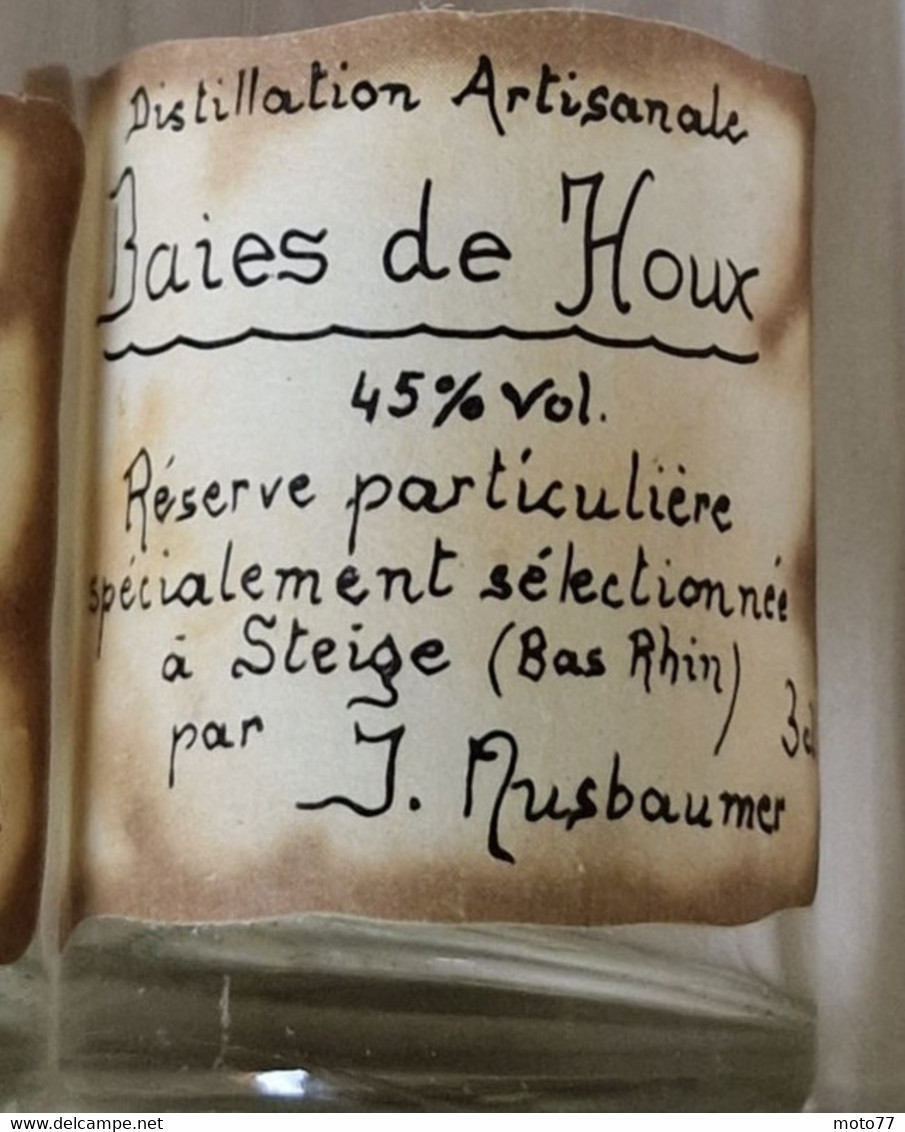 Distillation Artisanale
Baies de Houx
45% vol.
Réserve particulière
spécialement sélectionnée
à Steige (Bas Rhin)
3cl
par J. Nusbaumer
delcampe.net
moto77